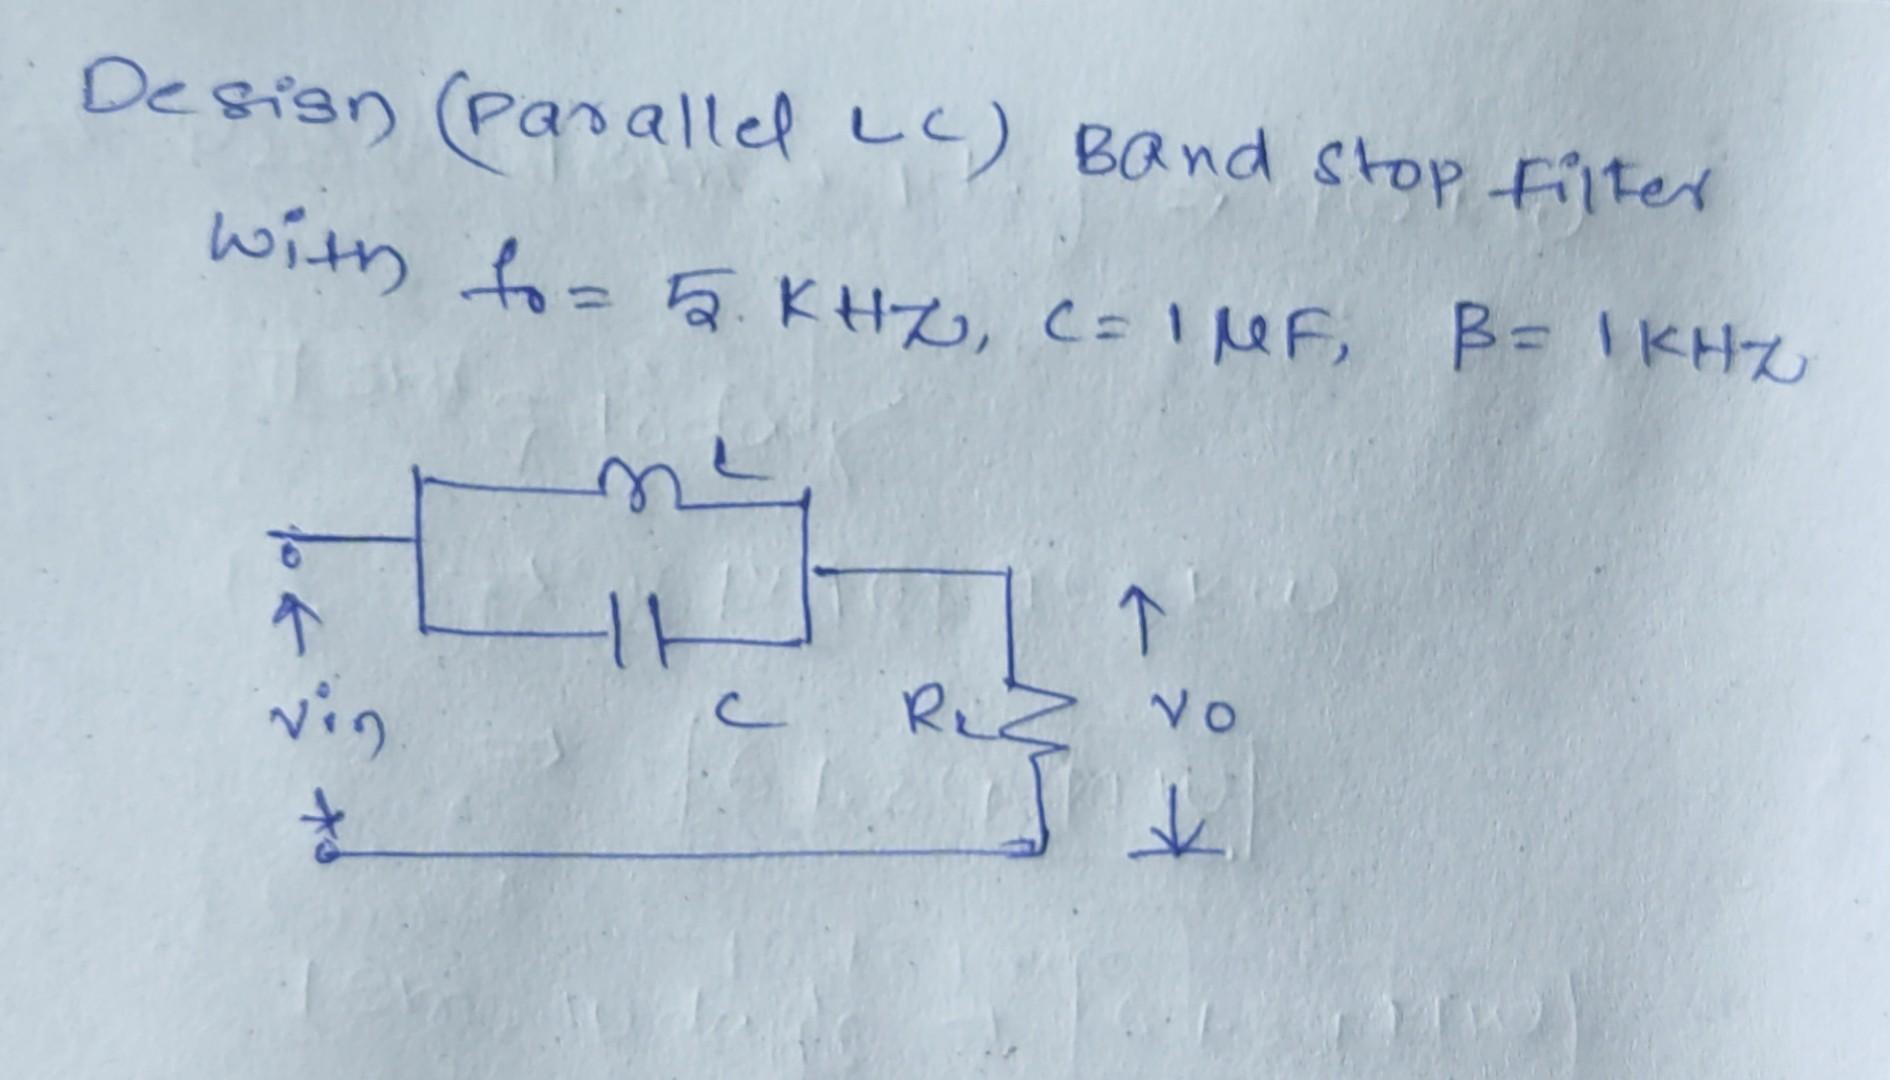 Design (Parallel LC) Band stop Filter
With fo = 5. KHZ, C = 1 μF, B = 1 KHZ
L
Vin
C
RL
VO